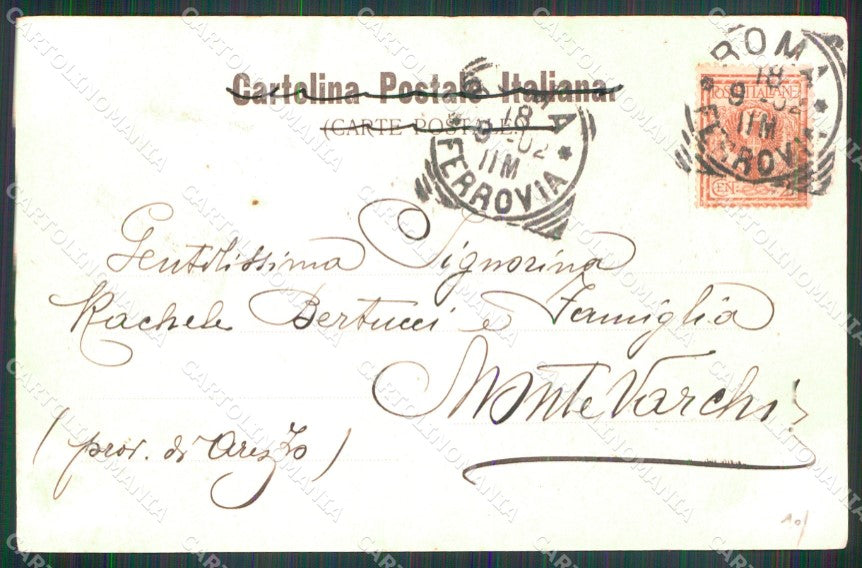 Cartolina Postale Italiana.
(CARTE POSTALE)
ROMA
18
9 - 02
11M
* FERROVIA *
ROMA
18
9 - 02
11M
* FERROVIA *
POSTE ITALIANE
CEN. 2
Gentilissima Signorina
Rachele Bertucci e Famiglia
MonteVarchi
(prov. di Arezzo)
10/
CARTOLINOMANIA